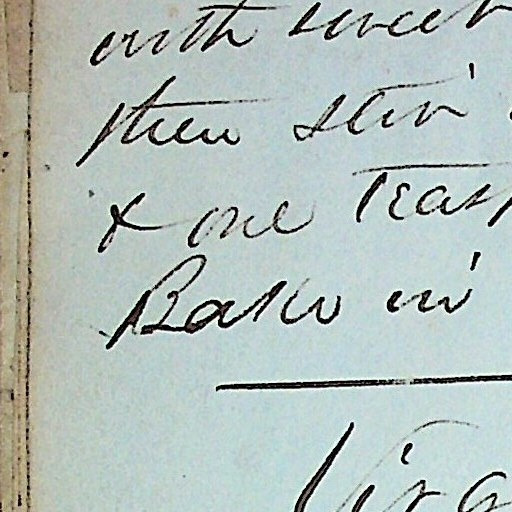 with sweet
then stir
& one Teasp
Bake in
Virg